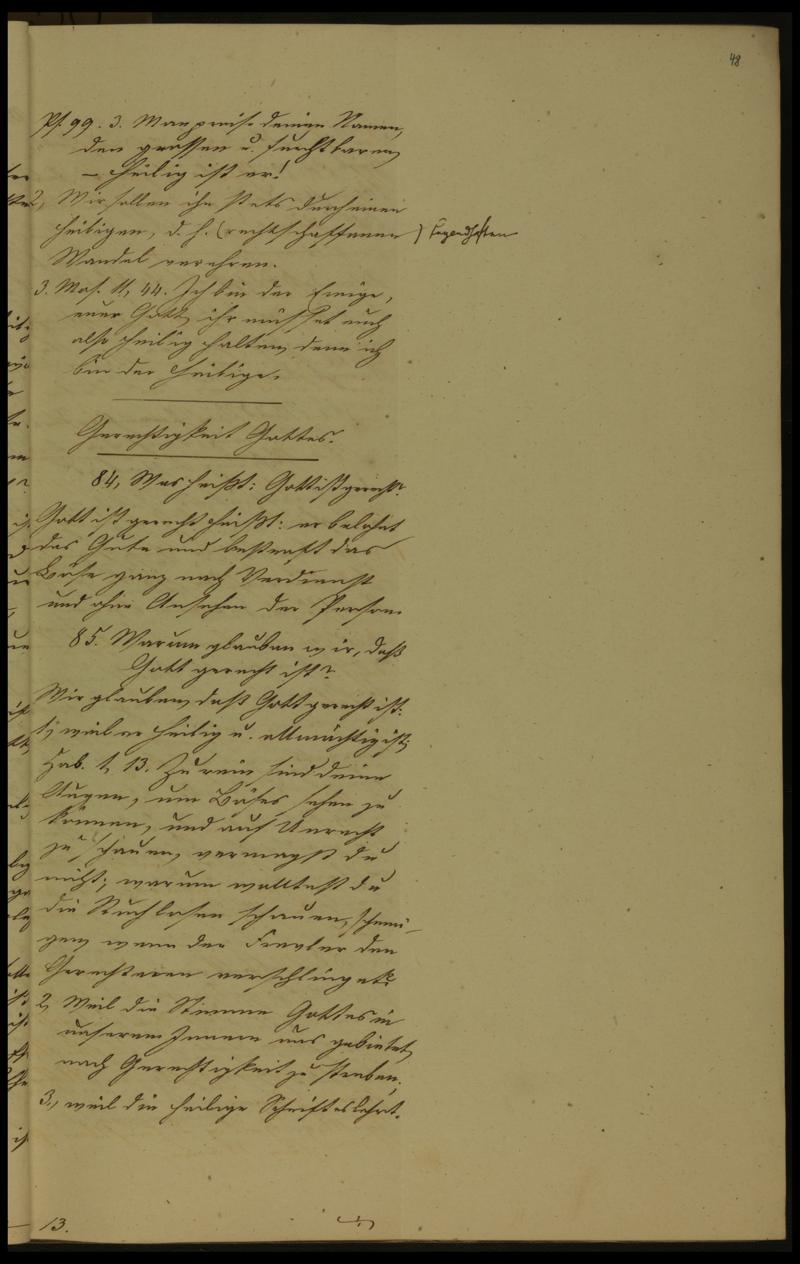 48
Ps. 99. 3. Man preise deinen Namen,
den grossen u. furchtbaren,
– heilig ist er!
2, Wir sollen ihn stets durch einen
heiligen, d. h. (rechtschaffenen) tugendhaften
Wandel verehren.
3. Mos. 11, 44. Ich bin der Ewige,
euer Gott, ihr müsset euch
also heilig halten, denn ich
bin der Heilige.
Gerechtigkeit Gottes.
84, Was heißt: Gott ist gerecht?
Gott ist gerecht heißt: er belohnt
das Gute und bestraft das
Böse ganz nach Verdienst
und ohne Ansehen der Person.
85. Warum glauben wir, daß
Gott gerecht ist?
Wir glauben, daß Gott gerecht ist:
1, weil er heilig u. allmächtig ist;
Hab. 1, 13. Zu rein sind deine
Augen, um Böses sehen zu
können, und auf Unrecht
zu schauen, vermagst du
nicht; warum wolltest du
die Ruchlosen schauen, schwei-
gen, wenn der Frevler den
Gerechteren verschlinget?
2, Weil die Stimme Gottes in
unserem Innern uns gebietet,
nach Gerechtigkeit zu streben;
3., weil die heilige Schrift es lehrt.
13.